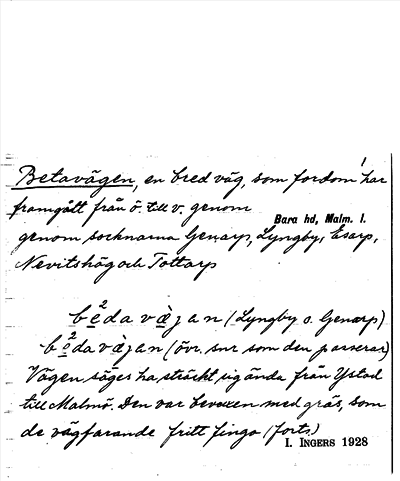 1
Betavägen, en bred väg, som fordom har
framgått från ö. till v. genom
Bara hd, Malm. l.
genom socknarna Genarp, Lyngby, Esarp,
Nevitshög och Tottarp
be²da vàjan (Lyngby o. Genarp)
bo²da vàjan (övr. snr som den passerar)
Vägen säges ha sträckt sig ända från Ystad
till Malmö. Den var beväxen med gräs, som
de vägfarande fritt fingo (forts.)
I. INGERS 1928